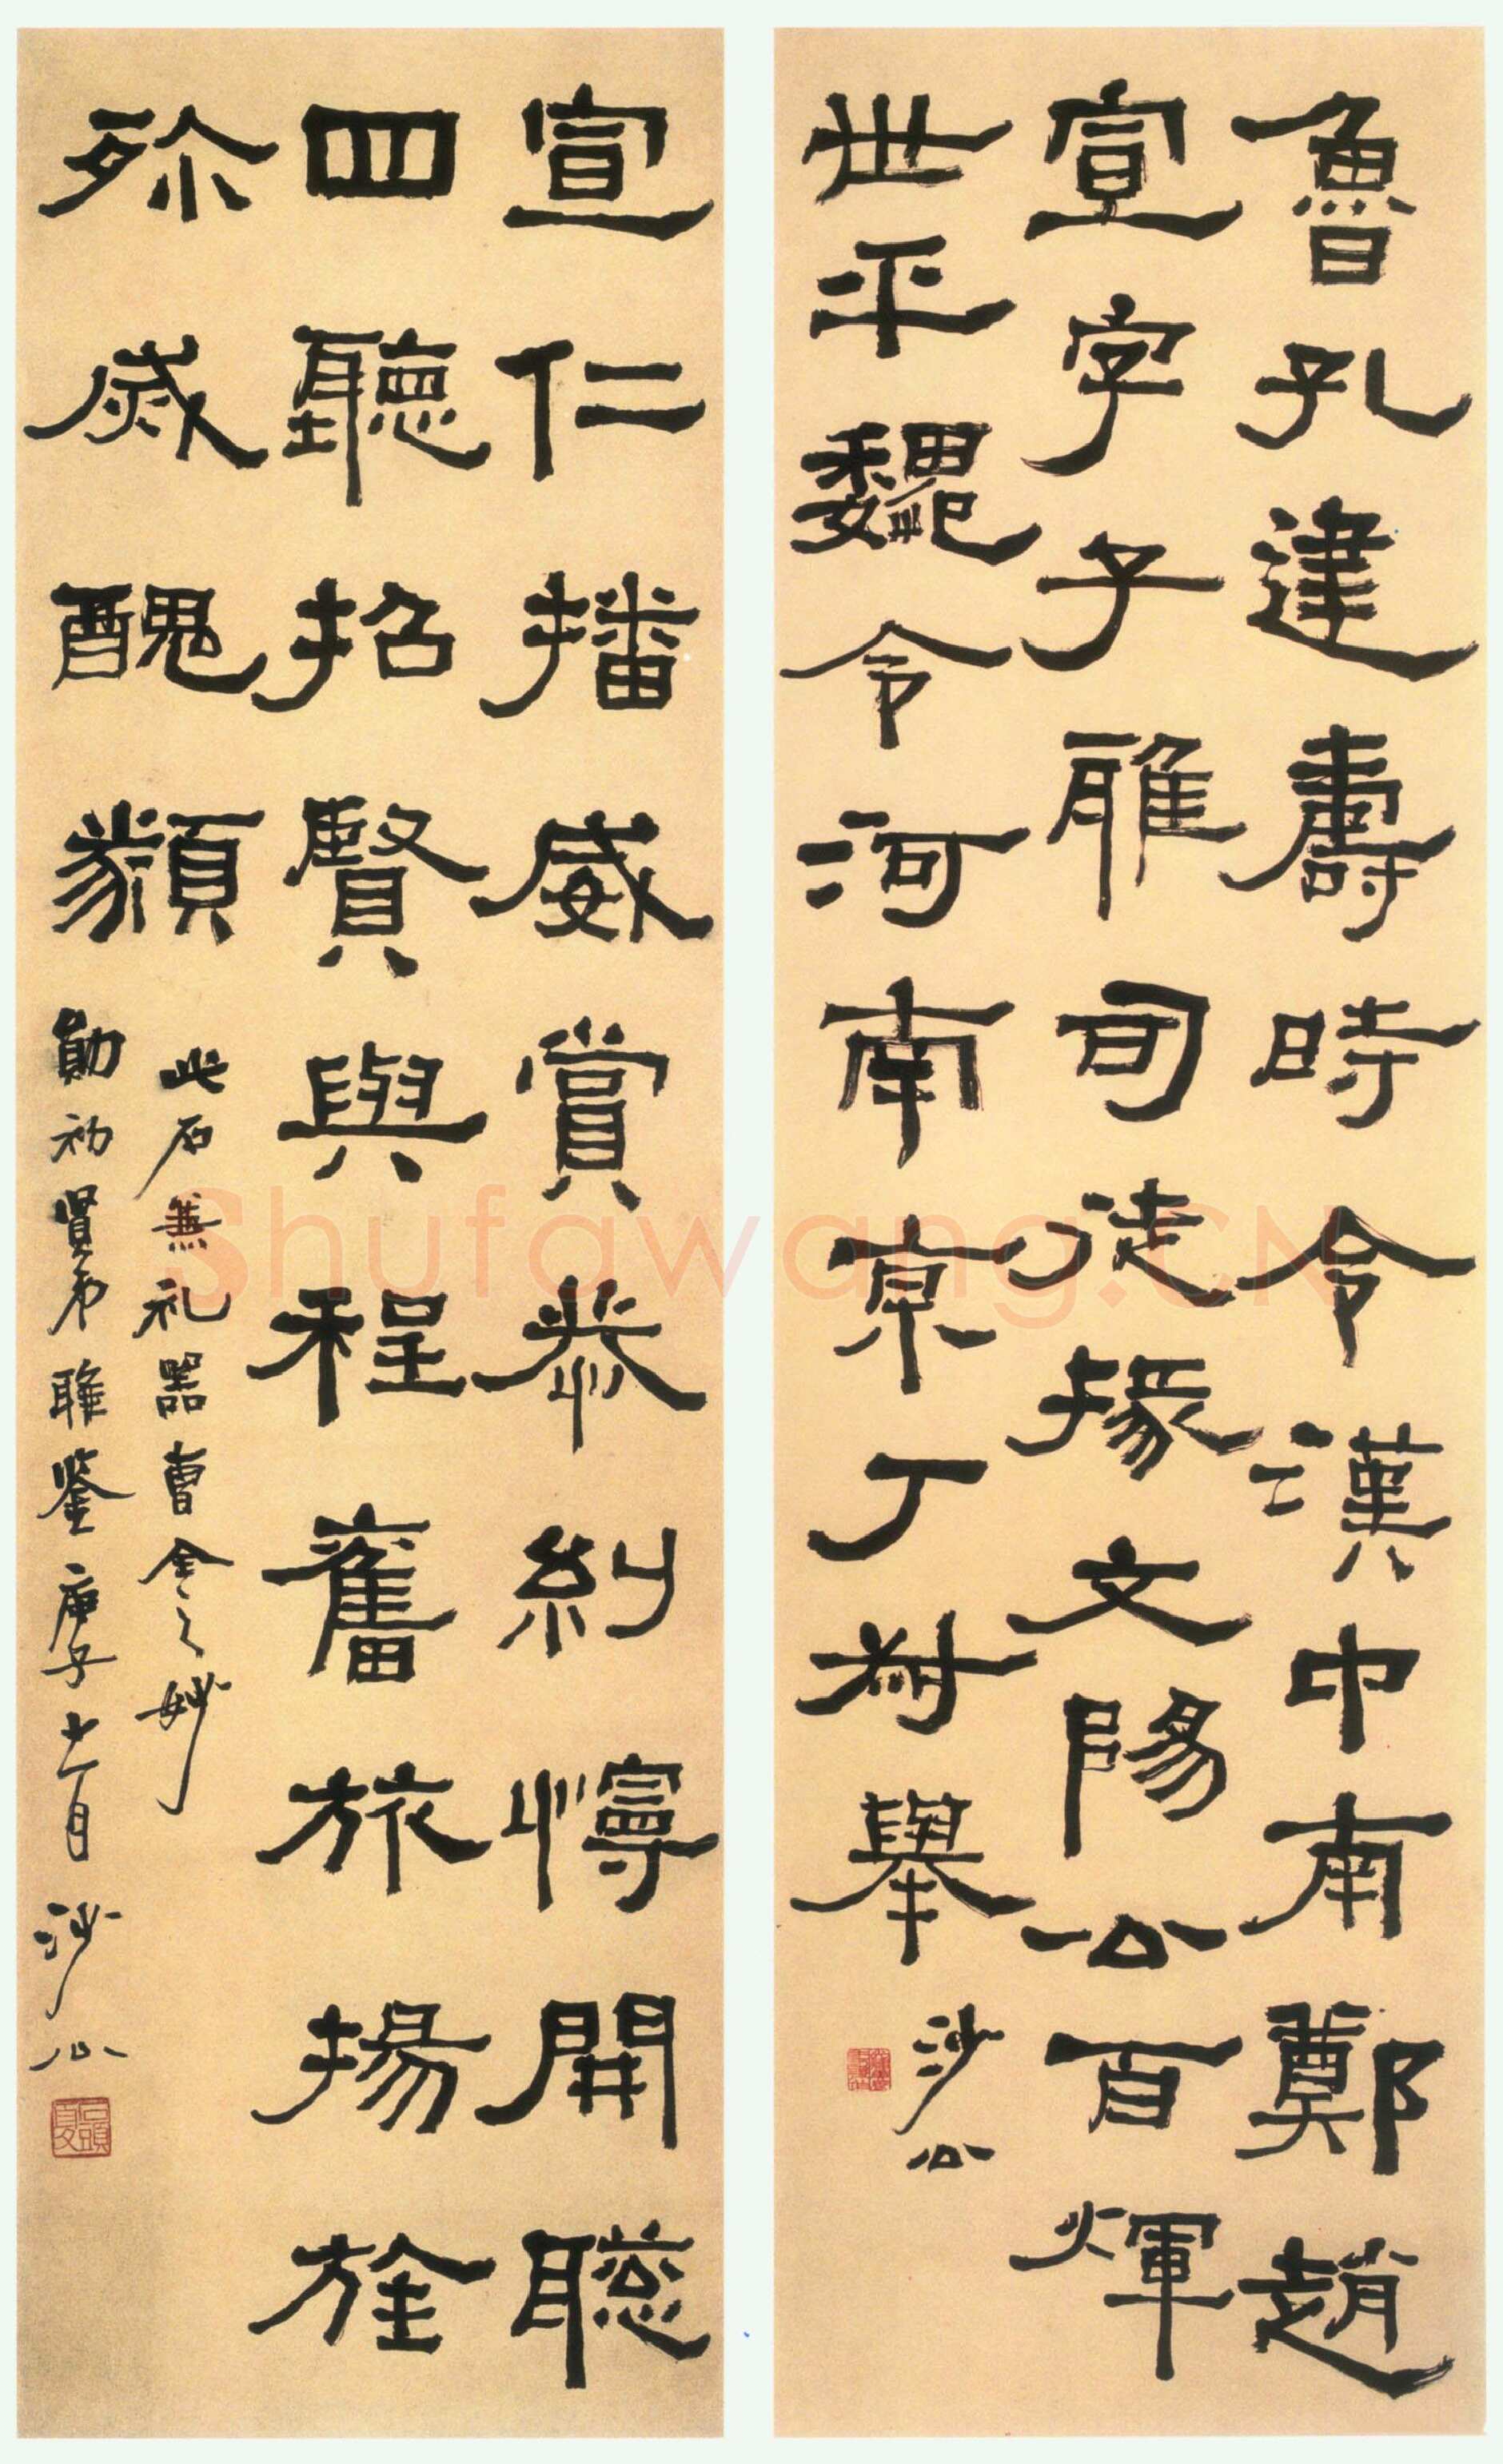 魯孔建壽時令漢中南鄭趙
宣字子雅司徒掾文陽公百煇
世平魏令河南京丁叔舉
沙公
宣仁播威賞恭糾懧開聰
四聽招賢與程奮旅揚旌
殄烕醜類
此石兼礼器曹全之妙
勛初賢弟雅鉴庚子十一月沙公
Shufawang.CN